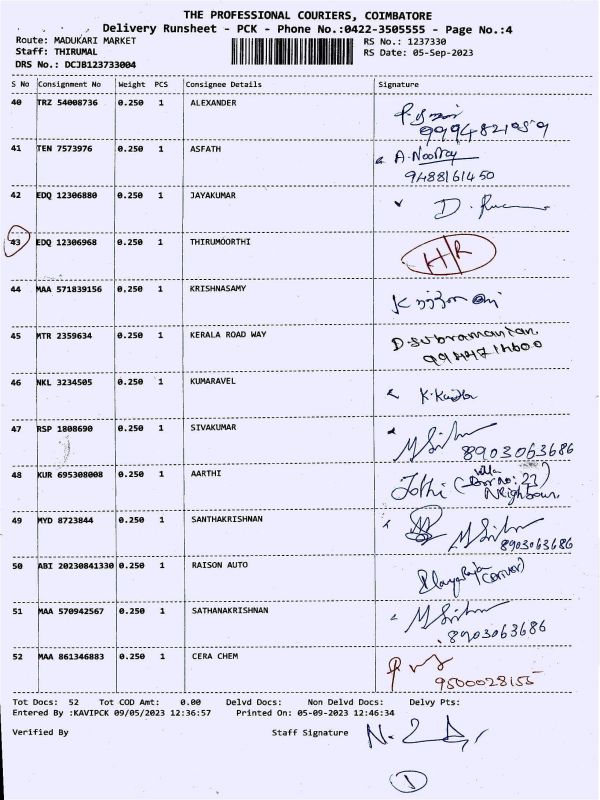 THE PROFESSIONAL COURIERS, COIMBATORE
Delivery Runsheet - PCK - Phone No.:0422-3505555 - Page No.:4
Route: MADUKARI MARKET RS No.: 1237330
Staff: THIRUMAL RS Date: 05-Sep-2023
DRS No.: DCJB123733004
S No Consignment No Weight PCS Consignee Details Signature
40 TRZ 54008736 0.250 1 ALEXANDER
41 TEN 7573976 0.250 1 ASFATH A.
9488161450
42 EDQ 12306880 0.250 1 JAYAKUMAR D.
43 EDQ 12306968 0.250 1 THIRUMOORTHI H/R
44 MAA 571839156 0.250 1 KRISHNASAMY
45 MTR 2359634 0.250 1 KERALA ROAD WAY D.Subramanian
46 NKL 3234505 0.250 1 KUMARAVEL K.
47 RSP 1808690 0.250 1 SIVAKUMAR
8903063686
48 KUR 695308008 0.250 1 AARTHI Jothi (Villa
Door No: 23)
Neighbour
49 MYD 8723844 0.250 1 SANTHAKRISHNAN
8903063686
50 ABI 20230841330 0.250 1 RAISON AUTO
51 MAA 570942567 0.250 1 SATHANAKRISHNAN
8903063686
52 MAA 861346883 0.250 1 CERA CHEM
9500028155
Tot Docs: 52 Tot COD Amt: 0.00 Delvd Docs: Non Delvd Docs: Delvy Pts:
Entered By :KAVIPCK 09/05/2023 12:36:57 Printed On: 05-09-2023 12:46:34
Verified By Staff Signature
1